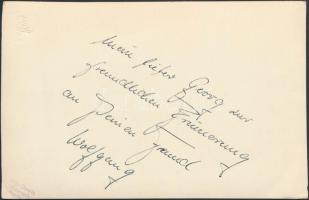 Mein lieber Georg zur
freundlichen Erinnerung
an Deinen Freund
Wolfgang